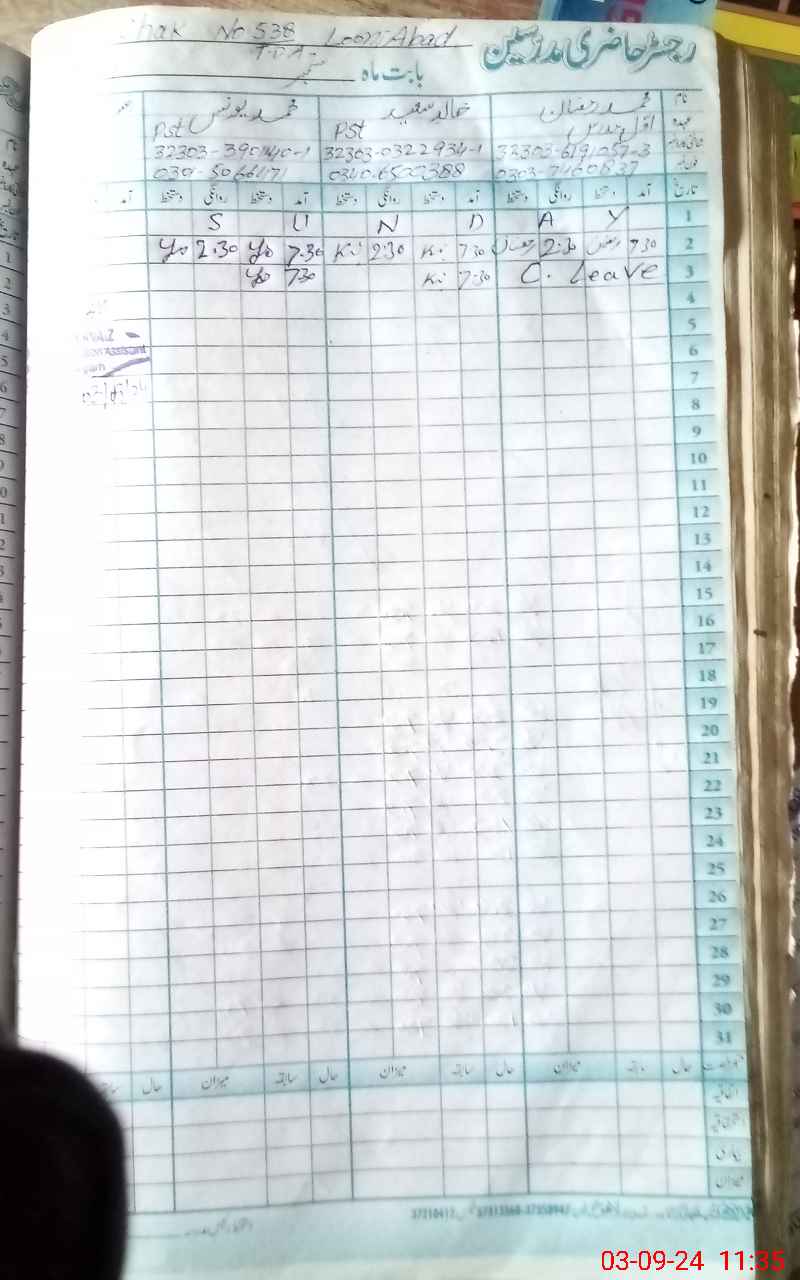 Chak No 538 Looni Abad
T.D.A
رجسٹر حاضری مدرسین
بابت ماہ ستمبر
نام محمد رمضان خالد سعید محمد یونس
عہدہ اول مدرس PST PST
32303-6191057-3 32303-0322934-1 32303-3901140-1
0303-7460837 0340-6500388 0301-5066171
تاریخ آمد دستخط روانگی دستخط آمد دستخط روانگی دستخط آمد دستخط روانگی دستخط آمد
1 S U N D A Y
2 7.30 رمضان 2.30 رمضان 7.30 Ki 2:30 Ki 7.30 Yo 2.30 Yo
3 C. Leave 7.30 Ki 7.30 Yo
4
5
6
7
8
9
10
11
12
13
14
15
16
17
18
19
20
21
22
23
24
25
26
27
28
29
30
31
حال سابقہ میزان حال سابقہ میزان حال سابقہ میزان حال
اتفاقیہ
استحقاقیہ
بیماری
میزان
03-09-24 11:35